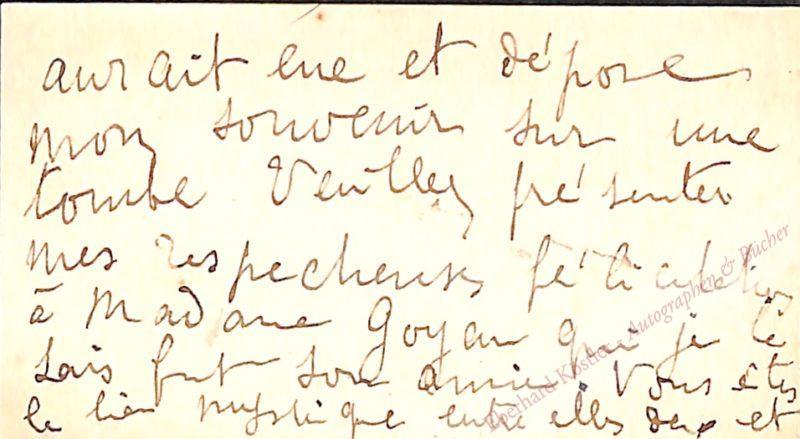 aurait eue et dépose
mon souvenir sur une
tombe Veuillez présenter
mes respectueuses félicitations
à Madame Goyau que je le
sais fut son amie. Vous êtes
le lien mystique entre elles deux et
Eberhard Köstler Autographen & Bücher